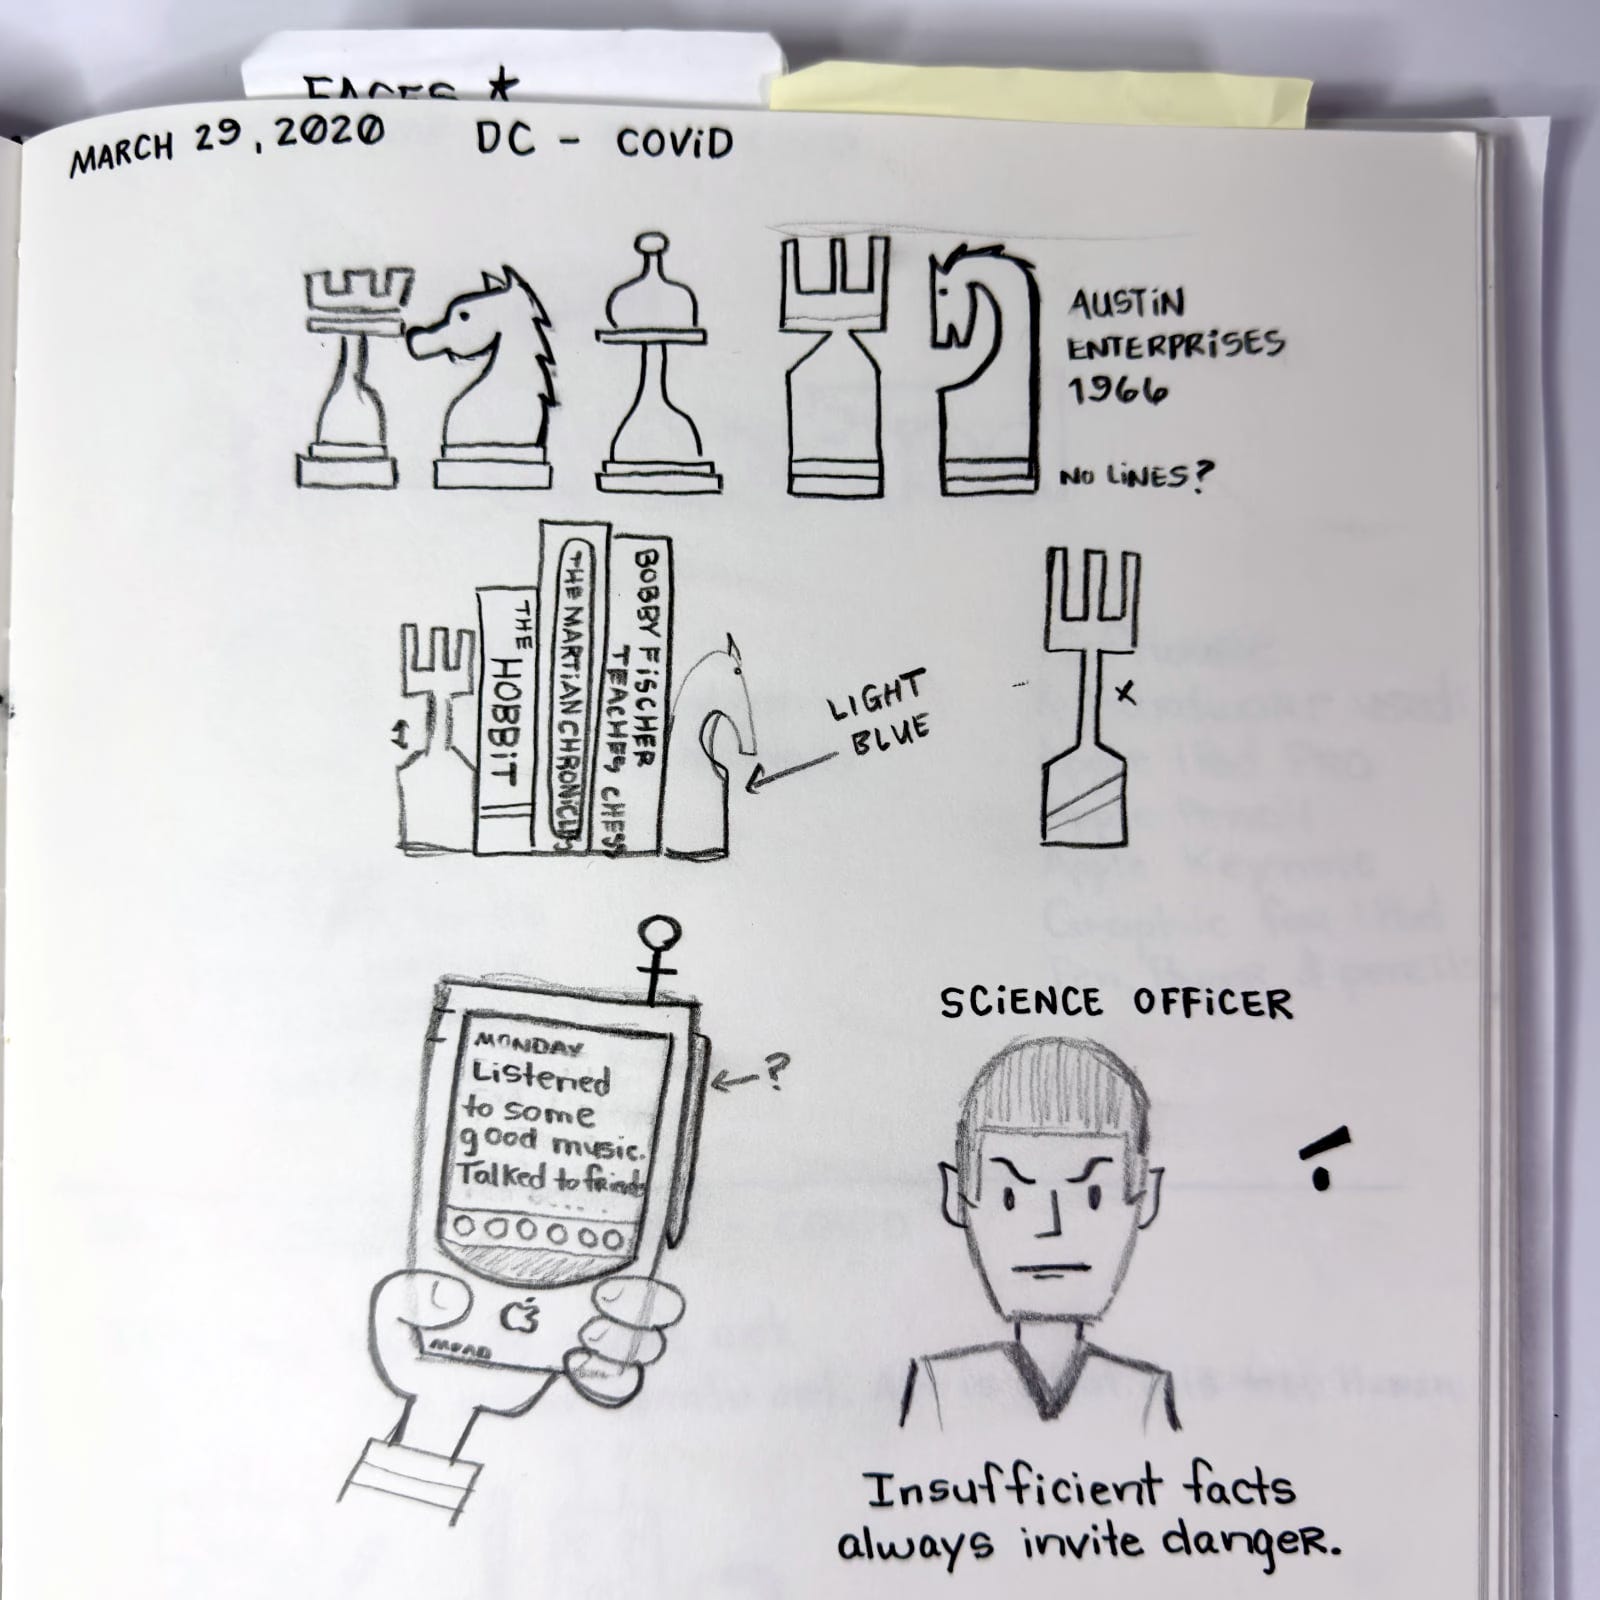 FACES *
MARCH 29, 2020 DC - COViD
AUSTiN
ENTERPRiSES
1966
NO LiNES?
THE HOBBiT
THE MARTIAN CHRONICLES
BOBBY FiSCHER
TEACHES CHESS
LIGHT
BLUE
x
MONDAY
Listened
to some
good music.
Talked to friends
.....
?
SCiENCE OFFiCER
Insufficient facts
always invite danger.